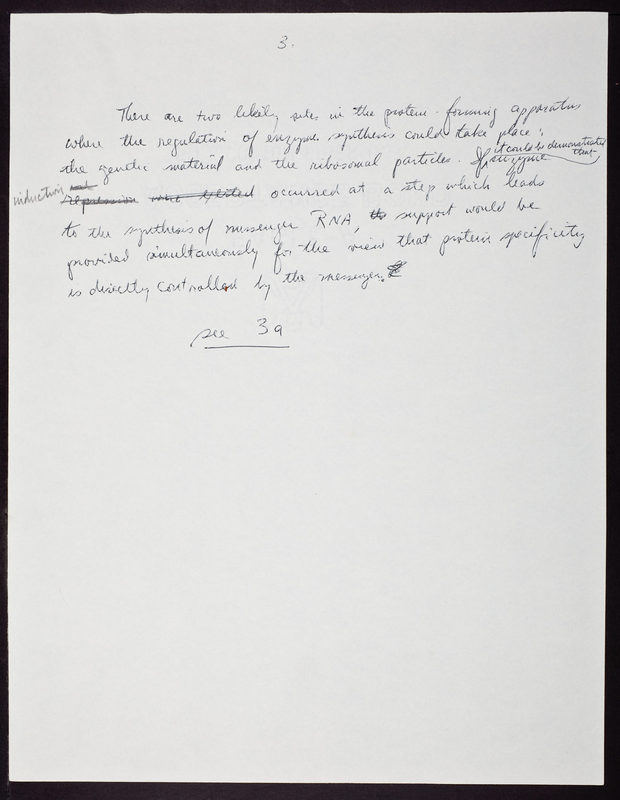 3.
There are two likely sites in the protein-forming apparatus
where the regulation of enzyme synthesis could take place:
the genetic material and the ribosomal particles. If it could be demonstrated that enzyme
induction and repression were occurred at a step which leads
to the synthesis of messenger RNA, support would be
provided simultaneously for the view that protein specificity
is directly controlled by the messenger.
see 3a